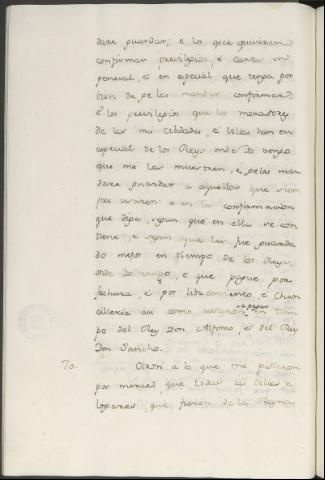 dare guardar; e los que quisieren
confirmar previlegios, e cartas en
general, o en especial que tenga por
bien de ge las mandar confirmar:
E los previlegios que los moradores
de las mis Cibdades, e Villas han en
especial de los Reyes onde Yo vengo
que me los muestren, e ge los man
dare guardar a aquellos que siem
pre usaron: e en la confirmacion
que diga segun que en ellos se con
tiene, e segun que les fue guarda
do mejor en tiempo de los Reyes
onde Yo vengo, e que pague por
fechura, e por libramiento, e Chan
cilleria asi como usaron a pagar en tiem
po del Rey Don Alfonso, e del Rey
Don Sancho.
70. Otrosi a lo que me pidieron
por merced que todas las Villas e
logares, que fueron de la Reyna